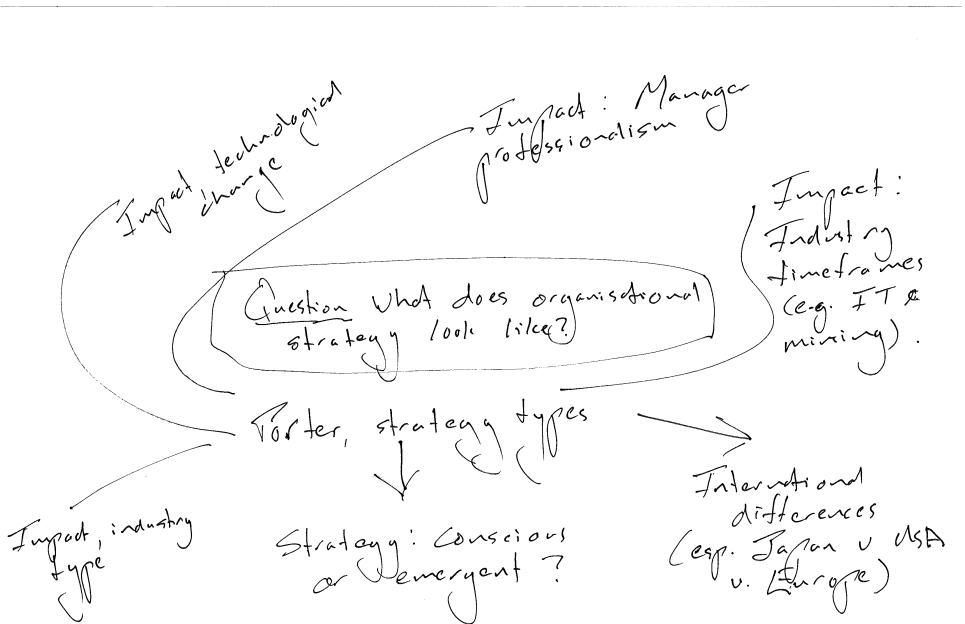 Impact technological
change
Impact: Manager
professionalism
Impact:
Industry
timeframes
(e.g. IT &
mining).
Question What does organisational
strategy look like?
Porter, strategy types
Impact, industry
type
Strategy: Conscious
or emergent?
International
differences
(esp. Japan v USA
v. Europe)